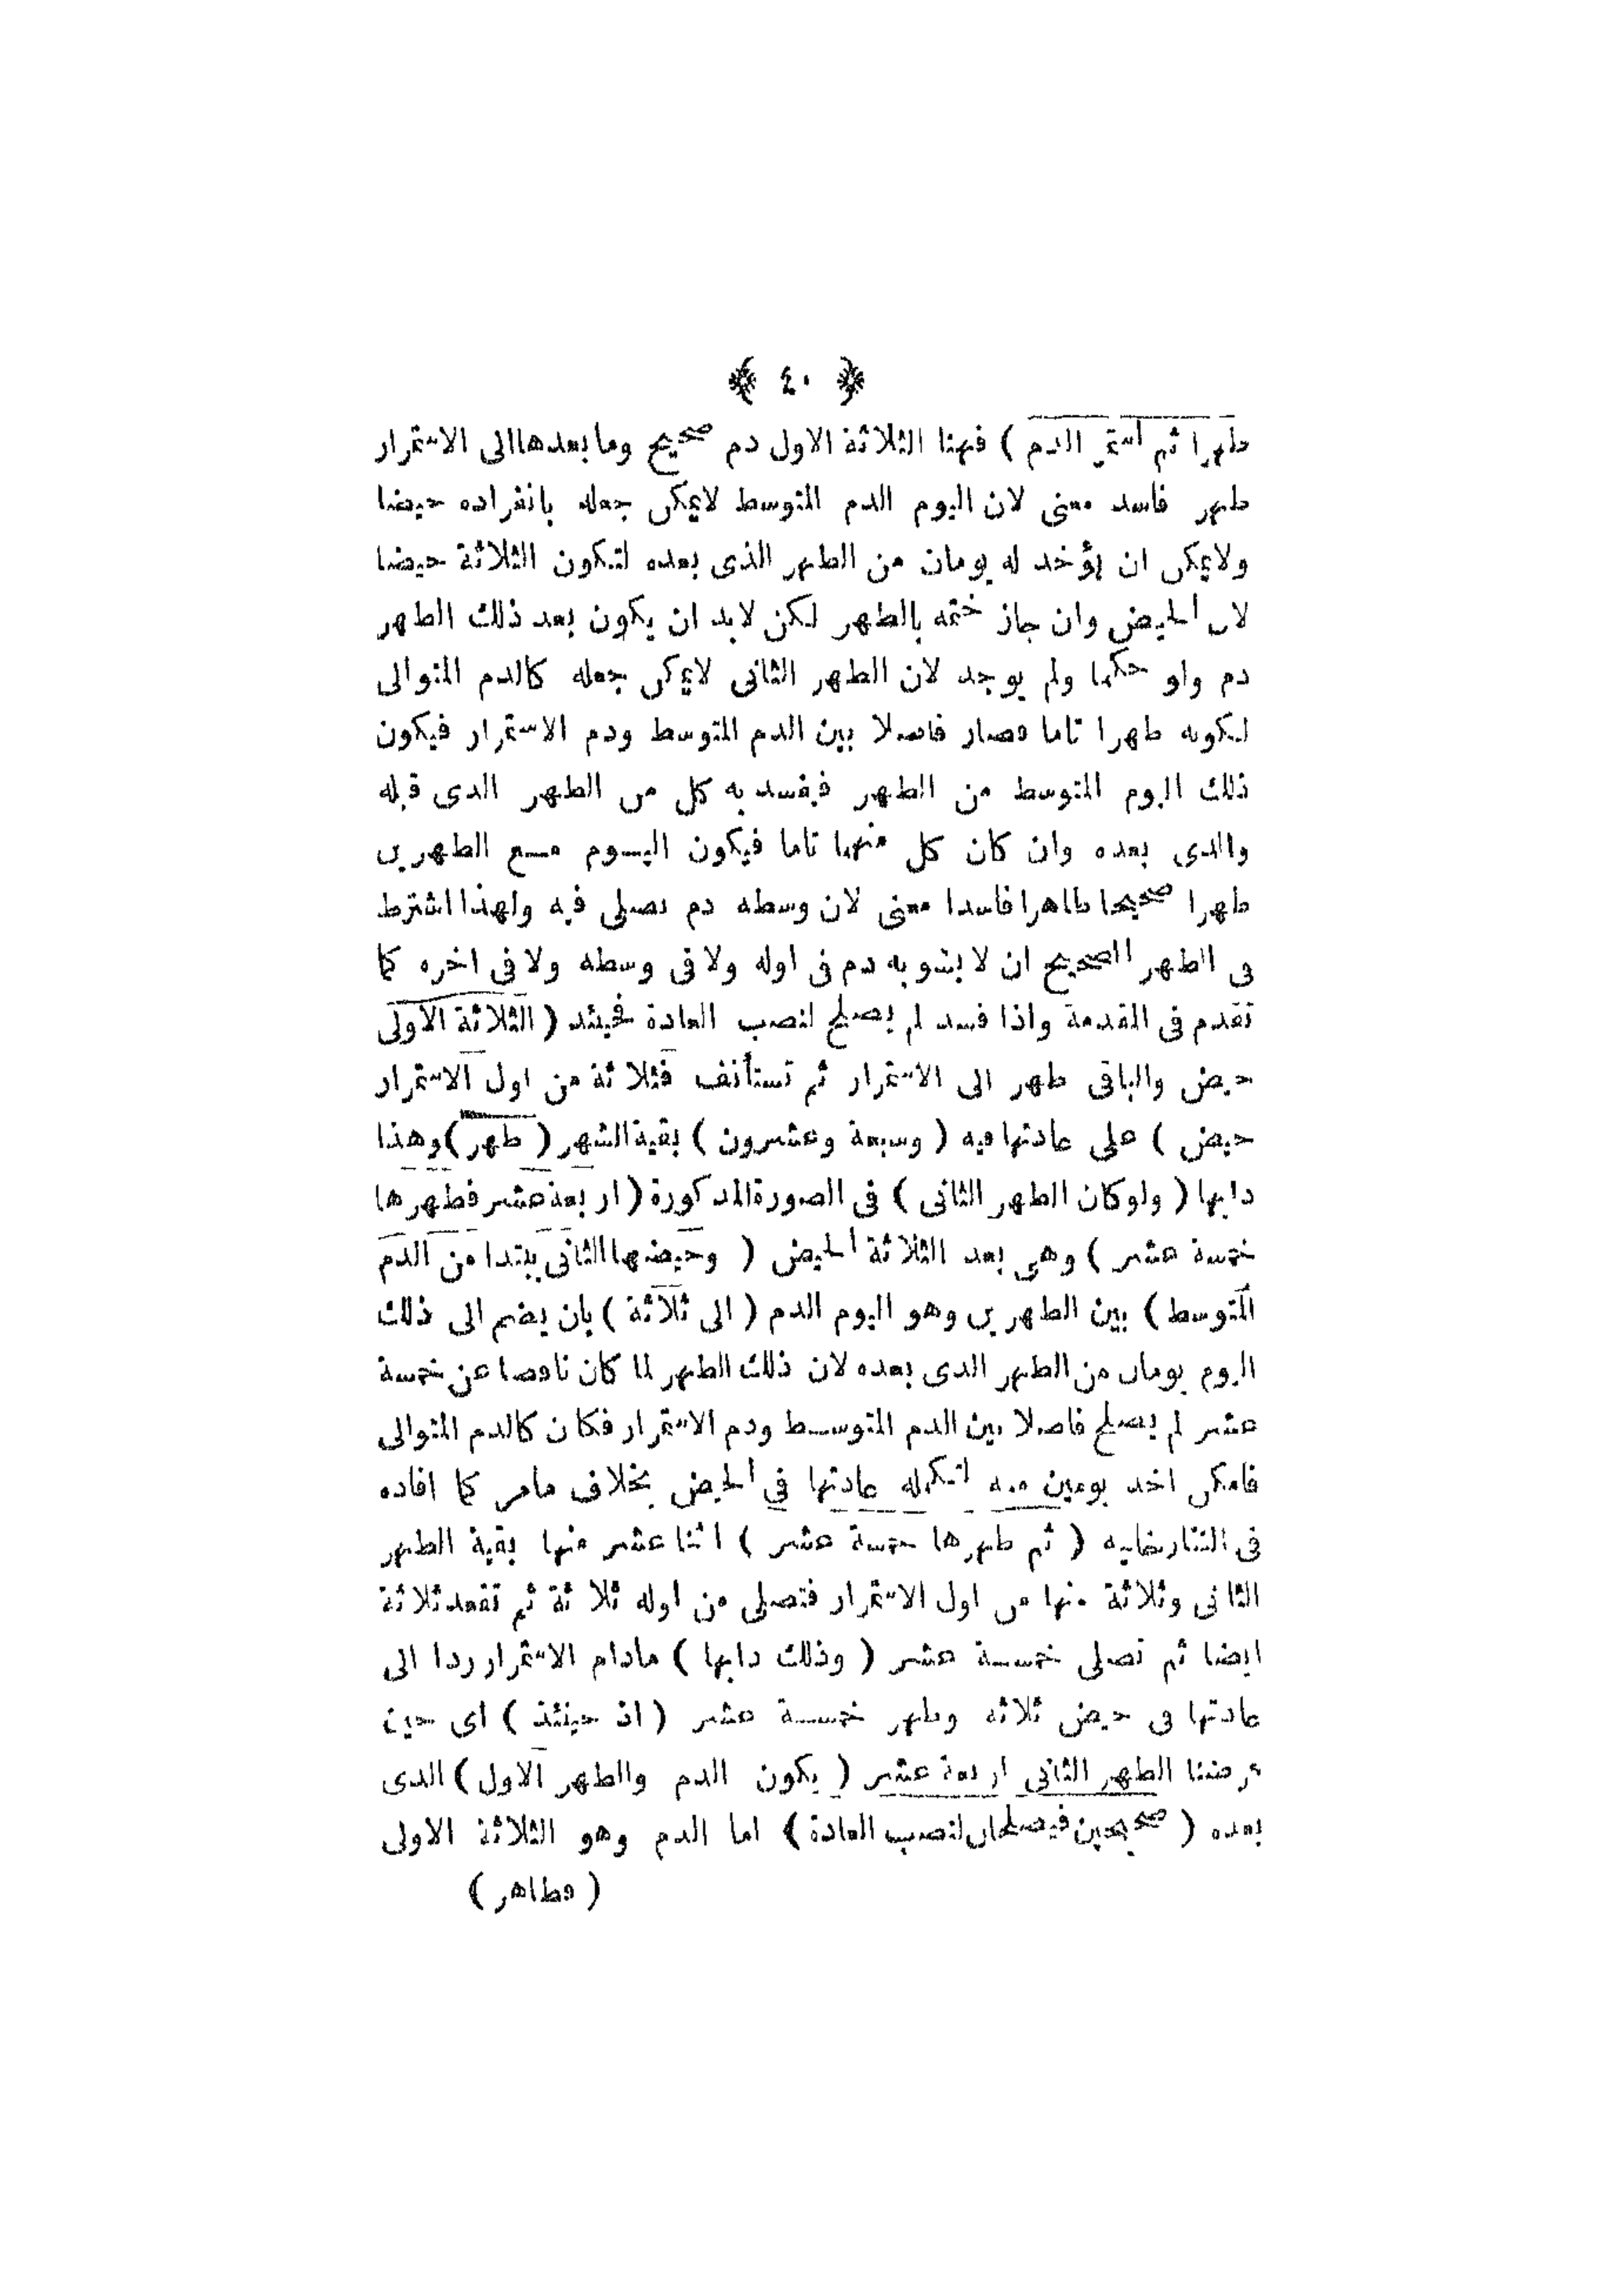 ﴿ ٤٠ ﴾
طهرا ثم استمر الدم ) فهنا الثلاثة الاول دم صحيح وما بعدها الى الاستمرار
طهر فاسد معنى لان اليوم الدم المتوسط لايمكن جعله بانفراده حيضا
ولايمكن ان يؤخذ له يومان من الطهر الذى بعده لتكون الثلاثة حيضا
لان الحيض وان جاز ختمه بالطهر لكن لابد ان يكون بعد ذلك الطهر
دم ولو حكما ولم يوجد لان الطهر الثانى لايمكن جعله كالدم المتوالى
لكونه طهرا تاما فصار فاصلا بين الدم المتوسط ودم الاستمرار فيكون
ذلك اليوم المتوسط من الطهر فيفسد به كل من الطهر الذى قبله
والذى بعده وان كان كل منهما تاما فيكون اليوم مع الطهرين
طهرا صحيحا ظاهرا فاسدا معنى لان وسطه دم تصلى فيه ولهذا اشترط
فى الطهر الصحيح ان لا يشوبه دم فى اوله ولا فى وسطه ولا فى اخره كما
تقدم فى المقدمة واذا فسد لم يصلح لنصب العادة فحينئذ ( الثلاثة الاولى
حيض والباقى طهر الى الاستمرار ثم تستأنف فثلاثة من اول الاستمرار
حيض ) على عادتها فيه ( وسبعة وعشرون ) بقية الشهر ( طهر ) وهذا
دابها ( ولو كان الطهر الثانى ) فى الصورة المذكورة ( اربعة عشر فطهرها
خمسة عشر ) وهى بعد الثلاثة الحيض ( وحيضها الثانى يبتدا من الدم
المتوسط ) بين الطهرين وهو اليوم الدم ( الى ثلاثة ) بان يضم الى ذلك
اليوم يومان من الطهر الذى بعده لان ذلك الطهر لما كان ناقصا عن خمسة
عشر لم يصلح فاصلا بين الدم المتوسط ودم الاستمرار فكان كالدم المتوالى
فامكن اخذ يومين منه لتكمله عادتها فى الحيض بخلاف مامر كما افاده
فى التتارخانيه ( ثم طهرها خمسة عشر ) اثنا عشر منها بقية الطهر
الثانى وثلاثة منها من اول الاستمرار فتصلى من اوله ثلاثة ثم تقعد ثلاثة
ايضا ثم تصلى خمسة عشر ( وذلك دابها ) مادام الاستمرار ردا الى
عادتها فى حيض ثلاثه وطهر خمسة عشر ( اذ حينئذ ) اى حين
فرضنا الطهر الثانى اربعة عشر ( يكون الدم والطهر الاول ) الذى
بعده ( صحيحين فيصلحان لنصب العادة ) اما الدم وهو الثلاثة الاولى
( فظاهر )